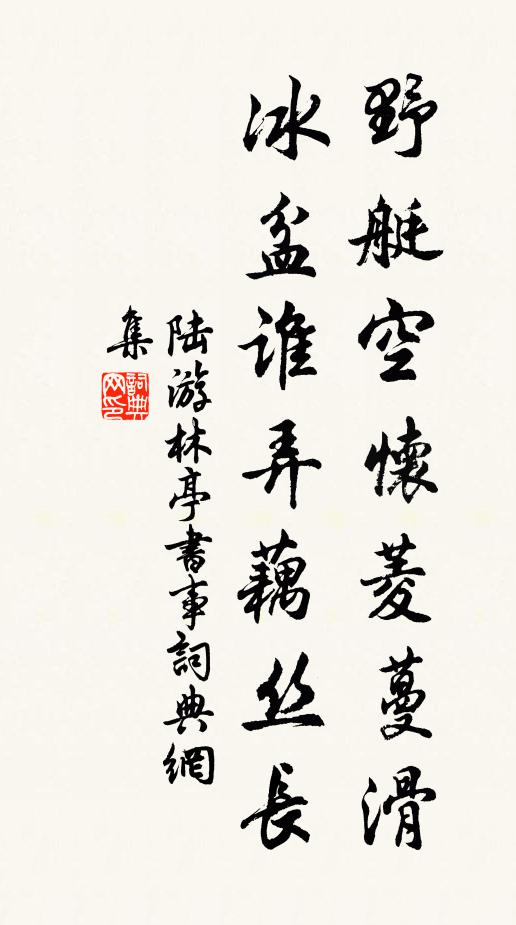 野艇空懷菱蔓滑
冰盆誰弄藕丝長
陆游林亭書事詞典網
集
詞典网印